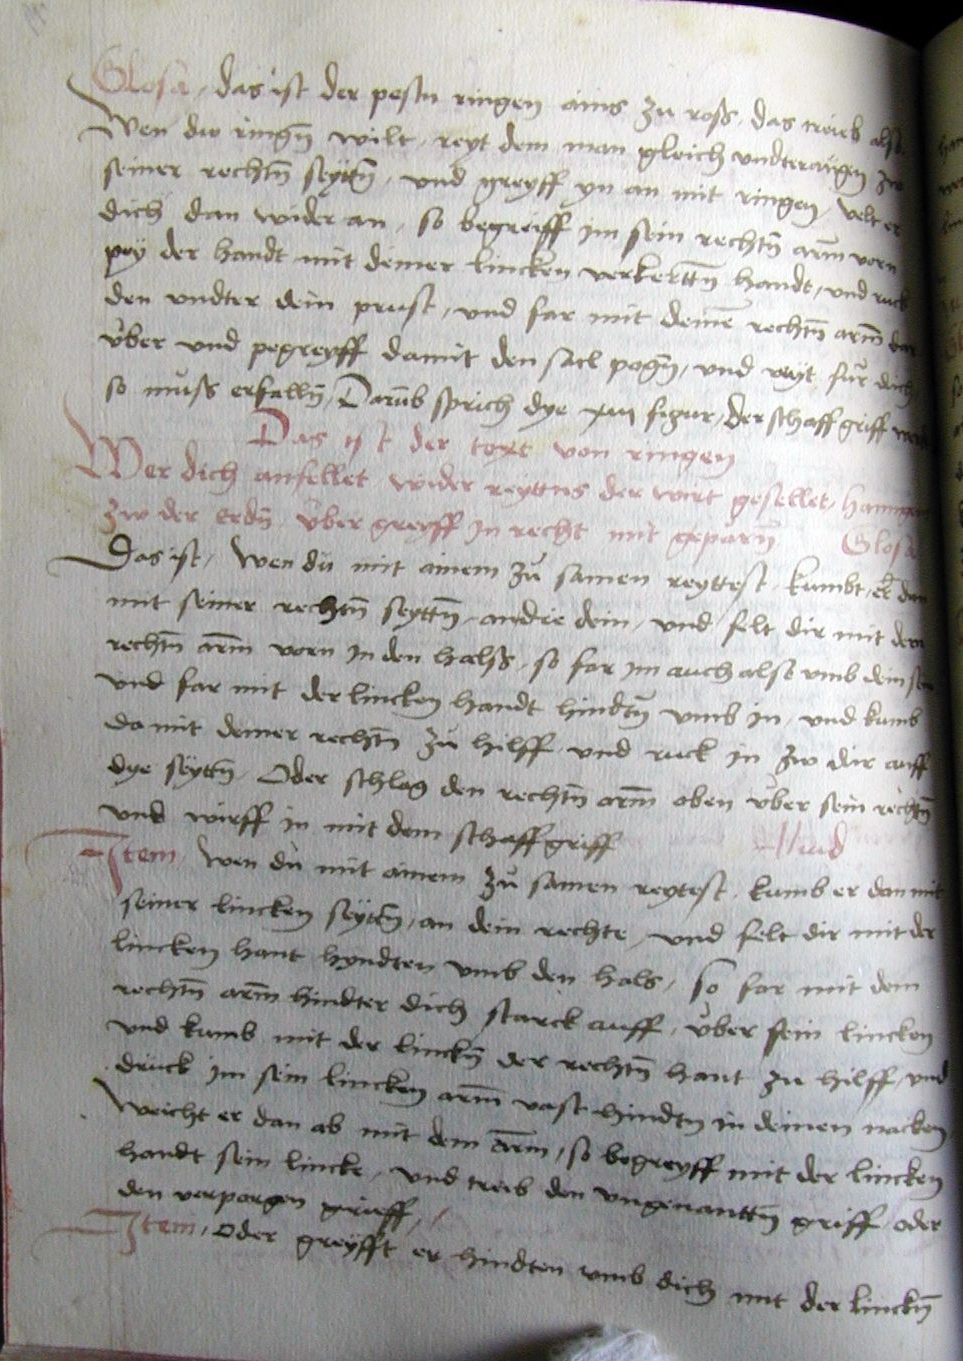 Glosa / das ist der pestn ringen ains zu roß / das treib also
Wen du ringn̄ wilt / reyt dem man gleich undteraugen zw
seiner rechtn̄ seyttn̄ / und greyff yn an mit ringen / velt er
dich dan wider an / so begreiff im sein rechtn̄ arm̄ vorn
pey der handt mit deiner lincken verkerttn̄ handt / und ruck
den undter dein prust / und far mit deinē rechtn̄ arm̄ dar
über und pegreyff damit den satl pogn̄ / und reyt für dich
so muß er falln̄ / Darūb sprich dye figur / der schaff griff
Das ist der text von ringen
Wer dich anfellet / wider reyttns der wirt gesellet /
zw der erdn̄ / über greyff in recht mit geparn̄ Glosa
Das ist / Wen du mit ainem zu samen reyttest / kumbt er dan
mit seiner rechtn̄ seyttn̄ an die dein / und felt dir mit dem
rechtn̄ arm̄ vorn in den halß / so far im auch also umb dein sein
und far mit der lincken handt hindtn̄ umb in / und kumb
damit deiner rechtn̄ zu hilff / und ruck in zw dir auff
dye seyttn̄ / Oder schlag den rechtn̄ arm̄ oben über sein rechtn̄
und wirff in mit dem schaff griff Aliud
Item / wen du mit ainem zu samen reytest / kumb er dan mit
seiner lincken seyttn̄ / an dein rechte / und felt dir mit der
lincken hant hyndten umb den hals / so far mit dem
rechtn̄ arm̄ hindter dich starck auff / über sein lincken
und kumb mit der linckn̄ der rechtn̄ hant zu hilff / und
druck im sein lincken arm̄ vast hindtn in deinen nacken
Weicht er dan ab mit dem arm̄ / so begreyff mit der lincken
handt sein lincke / und treib den ungenanttn̄ griff / oder
den verporgen grieff /
Item / oder greyfft er hindten umb dich mit der linckn̄